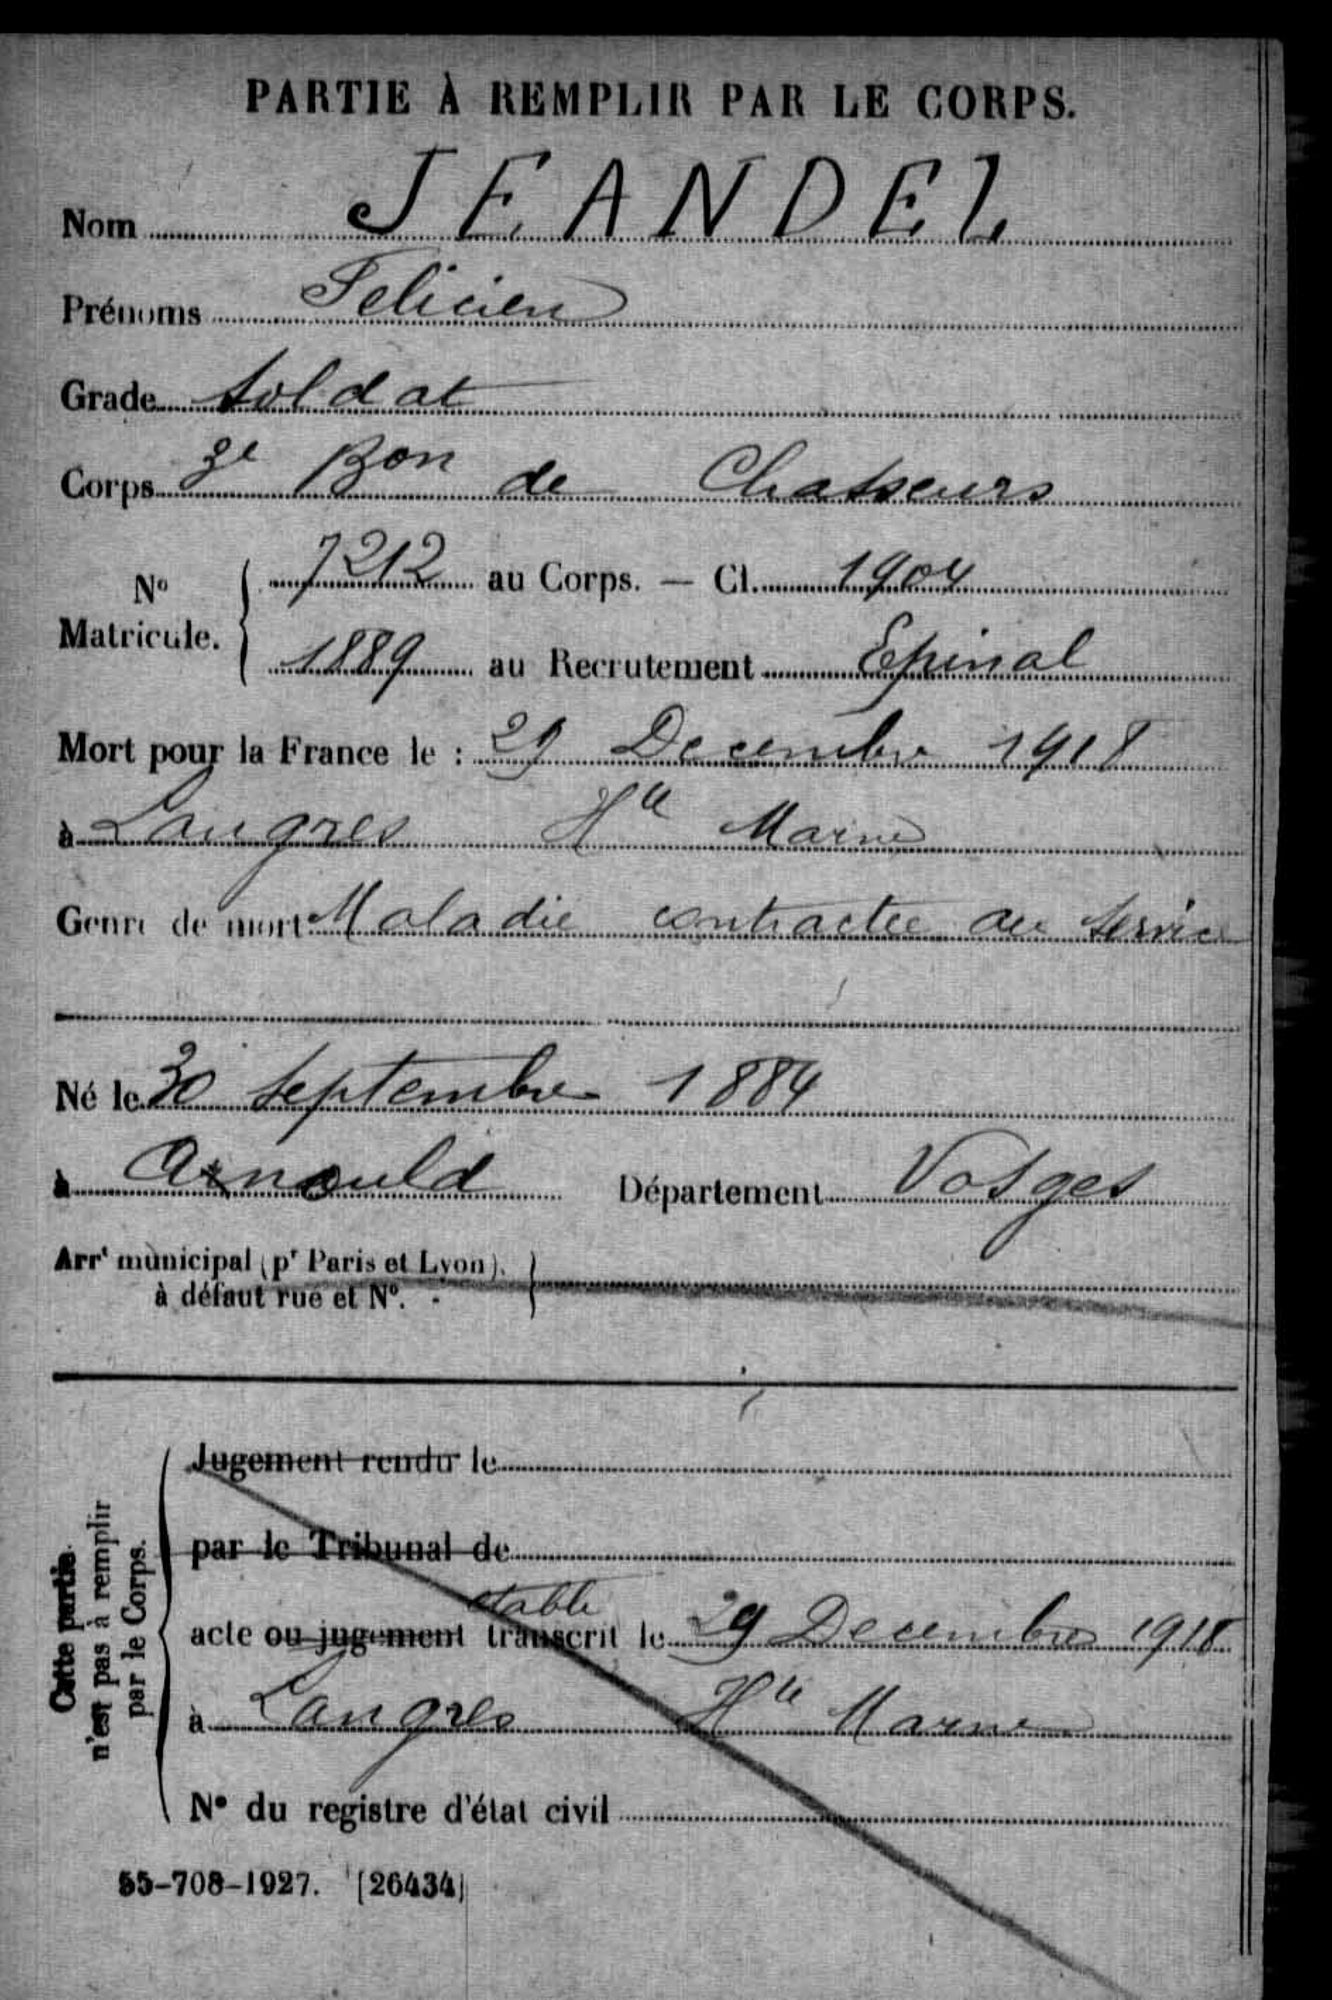 PARTIE À REMPLIR PAR LE CORPS.
Nom JEANDEL
Prénoms Felicien
Grade soldat
Corps 3e Bon de Chasseurs
No Matricule. 7212 au Corps. — Cl. 1904
1889 au Recrutement Epinal
Mort pour la France le : 29 Decembre 1918
à Langres Hte Marne
Genre de mort Maladie contractee au service
Né le 30 septembre 1884
à Arnould Département Vosges
Arrt municipal (pr Paris et Lyon),
à défaut rue et No.
Cette partie
n'est pas à remplir
par le Corps.
Jugement rendu le
par le Tribunal de
etabli
acte ou jugement transcrit le 29 Decembre 1918
à Langres Hte Marne
No du registre d'état civil
55-708-1927. [26434]